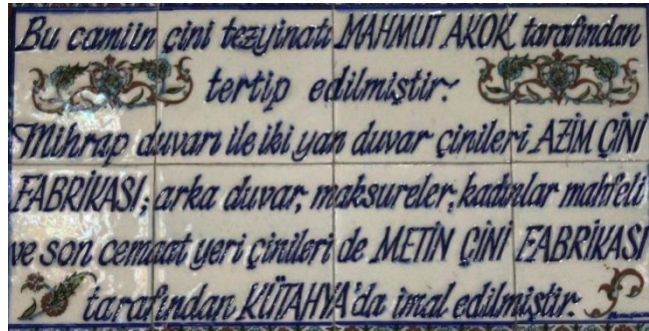 Bu camiin çini tezyinatı MAHMUT AKOK tarafından
tertip edilmiştir.
Mihrap duvarı ile iki yan duvar çinileri AZİM ÇİNİ
FABRİKASI; arka duvar, maksureler, kadınlar mahfeli
ve son cemaat yeri çinileri de METİN ÇİNİ FABRİKASI
tarafından KÜTAHYA'da imal edilmiştir.